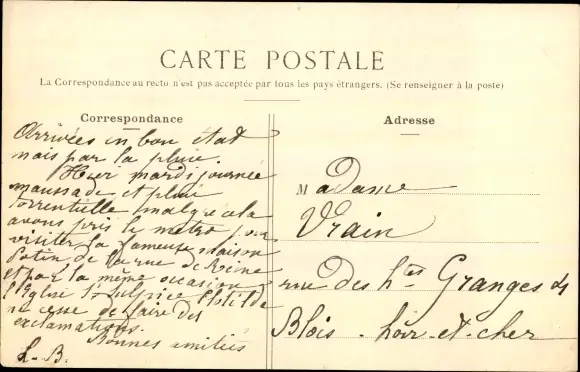 CARTE POSTALE
La Correspondance au recto n'est pas acceptée par tous les pays étrangers. (Se renseigner à la poste)
Correspondance
Arrivées en bon état
mais par la pluie.
Hier mardi journée
maussade et pluie
torrentielle malgré cela
avons pris le métro pour
visiter la fameuse maison
Potin de la rue de Reine
et par la même occasion
l'Eglise St Sulpice Clotilde
ne cesse de faire des
exclamations.
Bonnes amitiés
L. B.
Adresse
Madame
Vrain
rue des htes Granges
Blois - Loir-et-cher